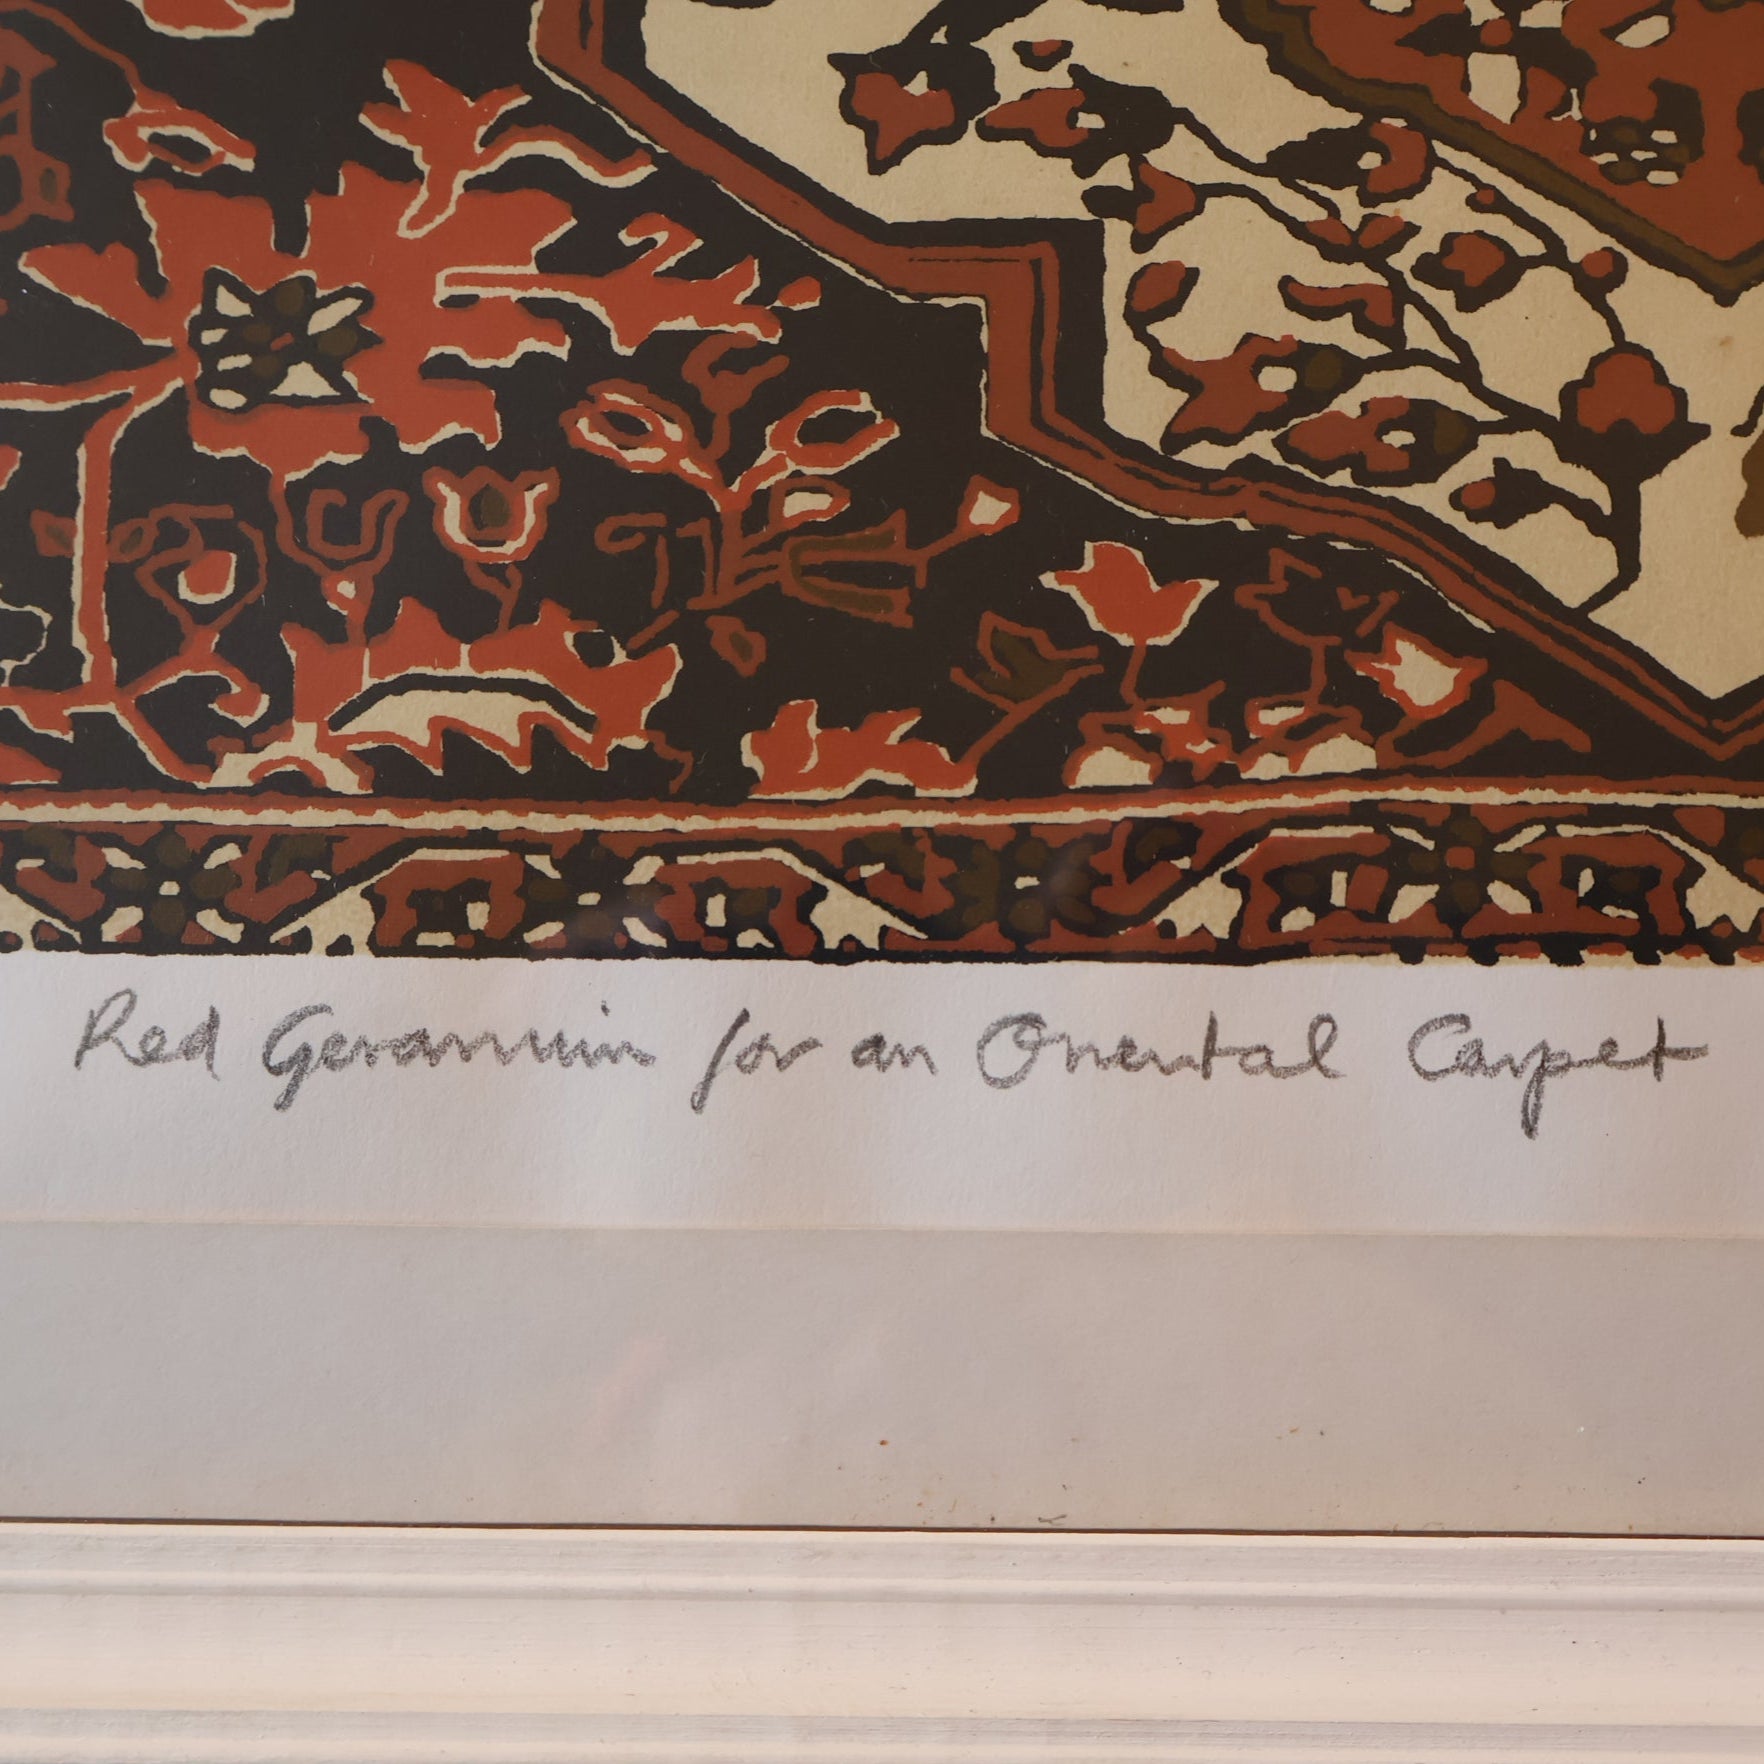 Red Geranium for an Oriental Carpet